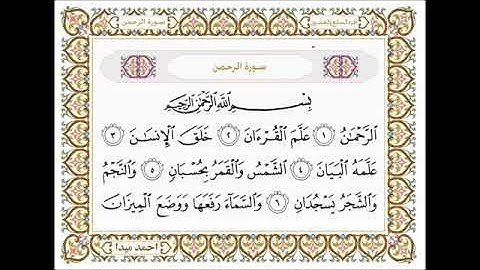 سورة الرحمن
الجزء السابع والعشرين
سورة الرحمن
بِسْمِ ٱللَّهِ ٱلرَّحْمَٰنِ ٱلرَّحِيمِ
ٱلرَّحْمَٰنُ ١ عَلَّمَ ٱلْقُرْءَانَ ٢ خَلَقَ ٱلْإِنسَٰنَ ٣
عَلَّمَهُ ٱلْبَيَانَ ٤ ٱلشَّمْسُ وَٱلْقَمَرُ بِحُسْبَانٍ ٥ وَٱلنَّجْمُ
وَٱلشَّجَرُ يَسْجُدَانِ ٦ وَٱلسَّمَآءَ رَفَعَهَا وَوَضَعَ ٱلْمِيزَانَ
احمد ميدا